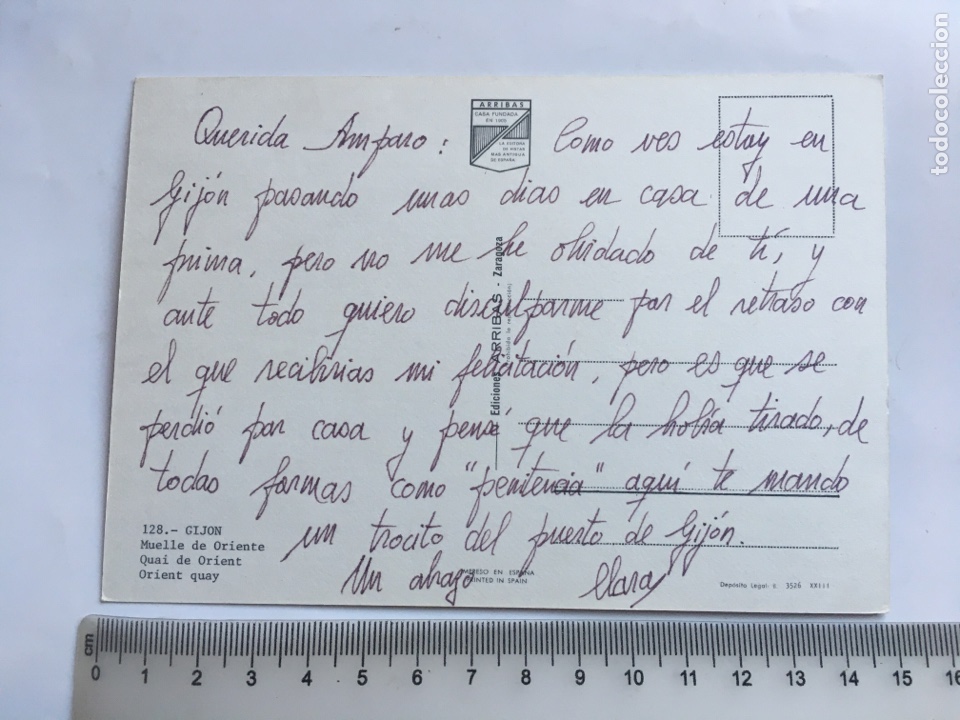 ARRIBAS
CASA FUNDADA
EN 1905
LA EDITORA
DE VISTAS
MAS ANTIGUA
DE ESPAÑA
Querida Amparo: Como ves estoy en
Gijón pasando unas dias en casa de una
prima, pero no me he olvidado de tí, y
ante todo quiero disculparme por el retraso con
el que recibirias mi felicitación, pero es que se
perdió por casa y pensé que la había tirado, de
todas formas como "penitencia" aquí te mando
un trocito del puerto de Gijón.
Un abrazo Clara
128.- GIJON
Muelle de Oriente
Quai de Orient
Orient quay
Ediciones ARRIBAS - Zaragoza
IMPRESO EN ESPAÑA
PRINTED IN SPAIN
Depósito Legal: Z. 3526 XXIII
todocoleccion
cm
0 1 2 3 4 5 6 7 8 9 10 11 12 13 14 15 16